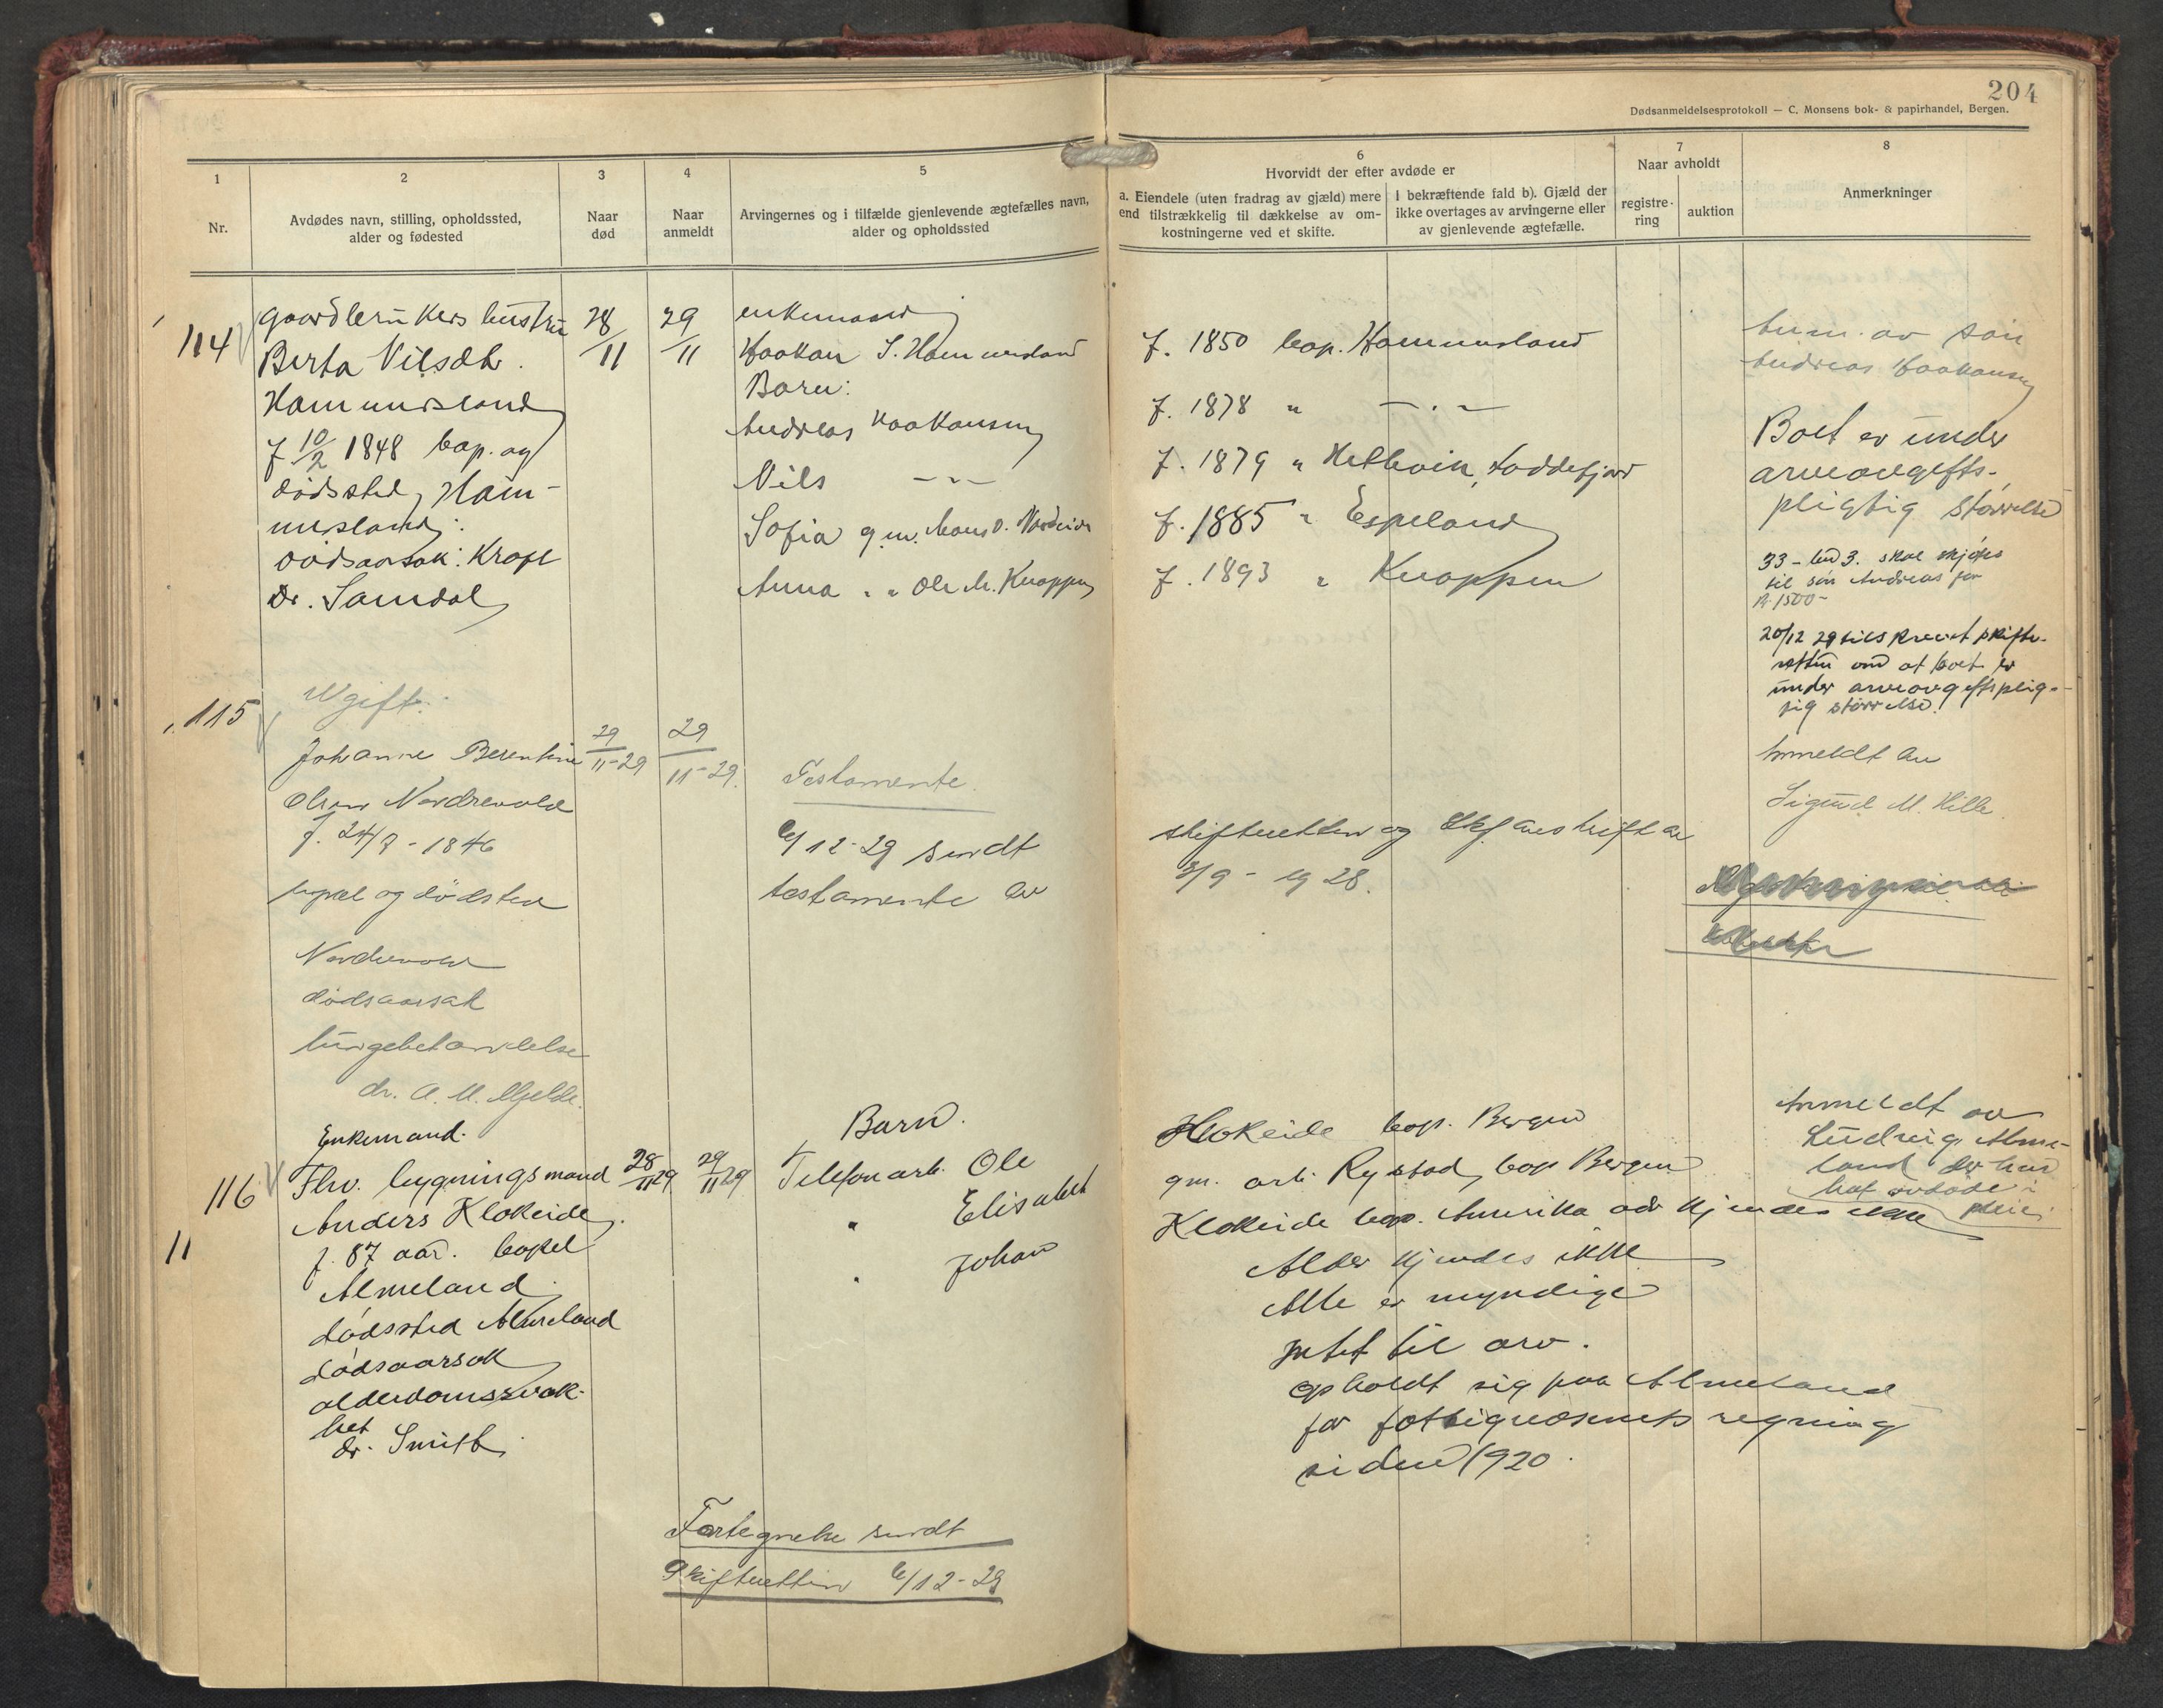 204
Dødsanmeldelsesprotokoll — C. Monsens bok- & papirhandel, Bergen.
1
Nr.
2
Avdødes navn, stilling, opholdssted,
alder og fødested
3
Naar
død
4
Naar
anmeldt
5
Arvingernes og i tilfælde gjenlevende ægtefælles navn,
alder og opholdssted
6
Hvorvidt der efter avdøde er
a. Eiendele (uten fradrag av gjæld) mere
end tilstrækkelig til dækkelse av om-
kostningerne ved et skifte.
I bekræftende fald b). Gjæld der
ikke overtages av arvingerne eller
av gjenlevende ægtefælle.
7
Naar avholdt
registre-
ring
auktion
8
Anmerkninger
114
gaardbrukers hustru
Berta Nilsdtr.
Hammersland
f. 10/2 1848 bop. og
dødssted, Ham-
mersland.
dødsaarsak: Kræft
Dr. Samdal
28/11
29/11
enkemand
Haakon S. Hammersland
Barn:
Andreas Haakonsen
Nils — " —
Sofia g.m. Mons O.
Anna " " Ole M. Knappen
f. 1850 bop. Hammersland
f. 1878 " — " —
f. 1879 " Loddefjord
f. 1885 " Espeland
f. 1893 " Knappen
Anm. av søn
Andreas Haakonsen
Boet er under
arveavgifts-
pligtig størrelse
33 - bno 3. skal skjøtes
til søn Andreas for
kr. 1500-
20/12 29 tilskrevet skifte-
retten om at boet er
under arveavgiftsplig-
tig størrelse.
115
Ugift.
Johanne Berentine
Olsen Nordrevold
f. 24/9 - 1846
bopæl og dødsted
Nordrevold
dødsaarsak
lungebetændelse
dr. A. M. Mjelde.
29/11-29
29/11-29.
Testamente.
6/12-29 sendt
testamente av
skifteretten og avskrift av
3/9 - 1928.
Anmeldt av
Sigurd M. Hille.
116
Enkemand.
Fhv. bygningsmand
Anders Klokeide
f. 87 aar. bopel
Almeland
dødssted Almeland
dødsaarsak
alderdomssvak-
het
dr. Smith
11
28/11 29
29/11 29
Barn.
Telefonarb. Ole
" Elisabet
" Johan
Klokeide bop. Bergen
gm. arb. Rystad, bop Bergen
Klokeide bop. Amerika adr kjendes ikke
Alder kjendes ikke
Alle er myndige
Intet til arv.
Opholdt sig paa Almeland
for fattigvæsenets regning
siden 1920.
Anmeldt av
Ludvig Alme-
land der har
hat avdøde i
pleie.
Fortegnelse sendt
Skifteretten 6/12-29